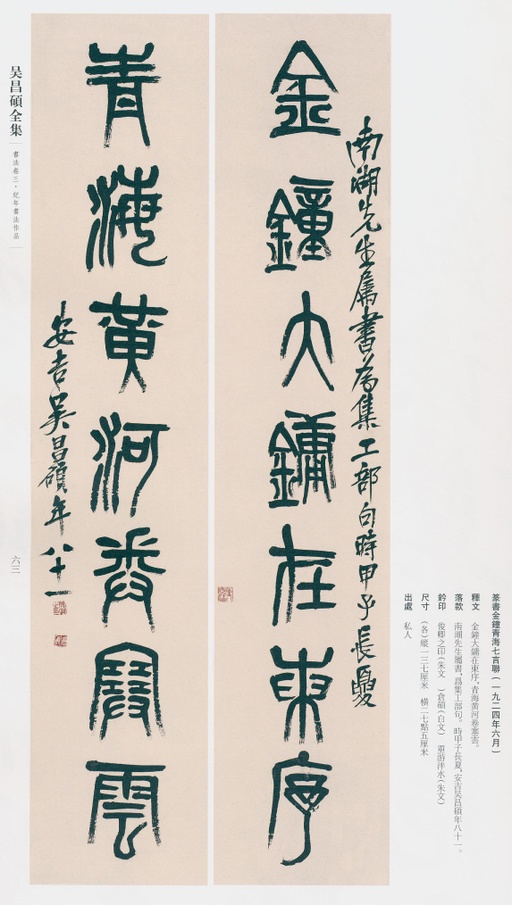 金鐘大鏞在東序
南湖先生屬書為集工部句時甲子長夏
青海黃河卷塞雲
安吉吴昌碩年八十一
篆書金鐘青海七言聯（一九二四年六月）
釋文　金鐘大鏞在東序，青海黄河卷塞雲。
落款　南湖先生屬書，爲集工部句。時甲子長夏，安吉吴昌碩年八十一。
鈐印　俊卿之印（朱文）　倉碩（白文）　重游泮水（朱文）
尺寸　（各）縱一三七厘米　横二七點五厘米
出處　私人
吴昌碩全集
書法卷三·紀年書法作品
六三